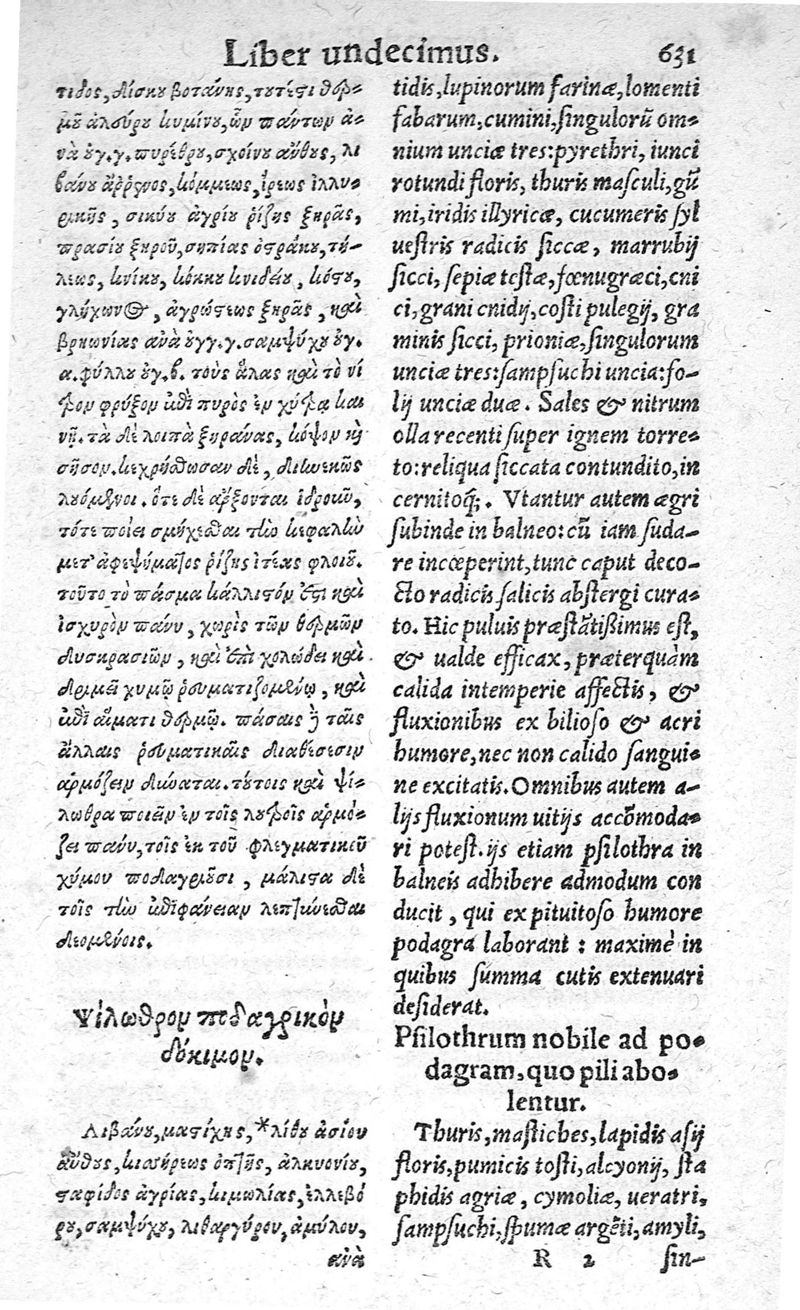 Liber undecimus. 631
τιδος, δίσκου βοτάνης, τουτέστι θερ-
μοῦ ἀλεύρου κυμίνου, ὧν πάντων ἀ-
νὰ ουγ. γ. πυρέθρου, σχοίνου ἄνθους, λι
βάνου ἄῤῥενος, κόμμεως, ἴρεως ἰλλυ-
ρικῆς, σικύου ἀγρίου ῥίζης ξηρᾶς,
πρασίου ξηροῦ, σηπίας ὀστράκου, τή-
λεως, κνίκου, κόκκου κνιδείου, κόστου,
γλήχωνος, ἀγρώστεως ξηρᾶς, καὶ
βρυωνίας ἀνὰ ουγγ. γ. σαμψύχου ουγ.
α. φύλλου ουγ. β. τοὺς ἅλας καὶ τὸ νί
τρον φρύξον ἐπὶ πυρὸς ἐν χύτρᾳ και
νῇ. τὰ δὲ λοιπὰ ξηράνας, κόψον καὶ
σῆσον. κεχρήσθωσαν δὲ, διηνεκῶς
λουόμενοι. ὅτε δὲ ἄρξονται ἱδροῦν,
τότε ποίει σμήχεσθαι τὴν κεφαλὴν
μετ' ἀφεψήματος ῥίζης ἰτέας φλοιοῦ.
τοῦτο τὸ πάσμα κάλλιστόν ἐστι καὶ
ἰσχυρὸν πάνυ, χωρὶς τῶν θερμῶν
δυσκρασιῶν, καὶ ἐπὶ χολώδει καὶ
δριμεῖ χυμῷ ῥευματιζομένῳ, καὶ
ἐπὶ αἵματι θερμῷ. πάσαις δὲ ταῖς
ἄλλαις ῥευματικαῖς διαθέσεσιν
ἁρμόζειν δύναται. τούτοις καὶ ψί-
λωθρα ποιεῖν ἐν τοῖς λουτροῖς ἁρμό-
ζει πάνυ, τοῖς ἐκ τοῦ φλεγματικοῦ
χύμου ποδαγριῶσι, μάλιστα δὲ
τοῖς τὴν ἐπιφάνειαν λεπτύνεσθαι
δεομένοις.
Ψίλωθρον ποδαγρικὸν
δόκιμον.
Λιβάνου, μαστίχης, *λίθου ἀσίου
ἄνθους, κισσήρεως ὀπτῆς, ἀλκυονίου,
σταφίδος ἀγρίας, κιμωλίας, ἑλλεβό
ρου, σαμψύχου, λιθαργύρου, ἀμύλου,
ἀνὰ
tidis, lupinorum farinæ, lomenti
fabarum, cumini, singulorũ om-
nium unciæ tres: pyrethri, iunci
rotundi floris, thuris masculi, gũ
mi, iridis illyricæ, cucumeris syl
uestris radicis siccæ, marrubij
sicci, sepiæ testæ, fœnugræci, cni
ci, grani cnidij, costi pulegij, gra
minis sicci, prioniæ, singulorum
unciæ tres: sampsuchi uncia: fo-
lij unciæ duæ. Sales & nitrum
olla recenti super ignem torre-
to: reliqua siccata contundito, in
cernitoq́;. Vtantur autem ægri
subinde in balneo: cũ iam suda-
re incœperint, tunc caput deco-
cto radicis salicis abstergi cura-
to. Hic puluis præstãtißimus est,
& ualde efficax, præterquàm
calida intemperie affectis, &
fluxionibus ex bilioso & acri
humore, nec non calido sangui-
ne excitatis. Omnibus autem a-
lijs fluxionum uitijs accõmoda-
ri potest. ijs etiam psilothra in
balneis adhibere admodum con
ducit, qui ex pituitoso humore
podagra laborant: maximè in
quibus summa cutis extenuari
desiderat.
Psilothrum nobile ad po-
dagram, quo pili abo-
lentur.
Thuris, mastiches, lapidis asij
floris, pumicis tosti, alcyonij, sta
phidis agriæ, cymoliæ, ueratri,
sampsuchi, spumæ argẽti, amyli,
R 2 sin-